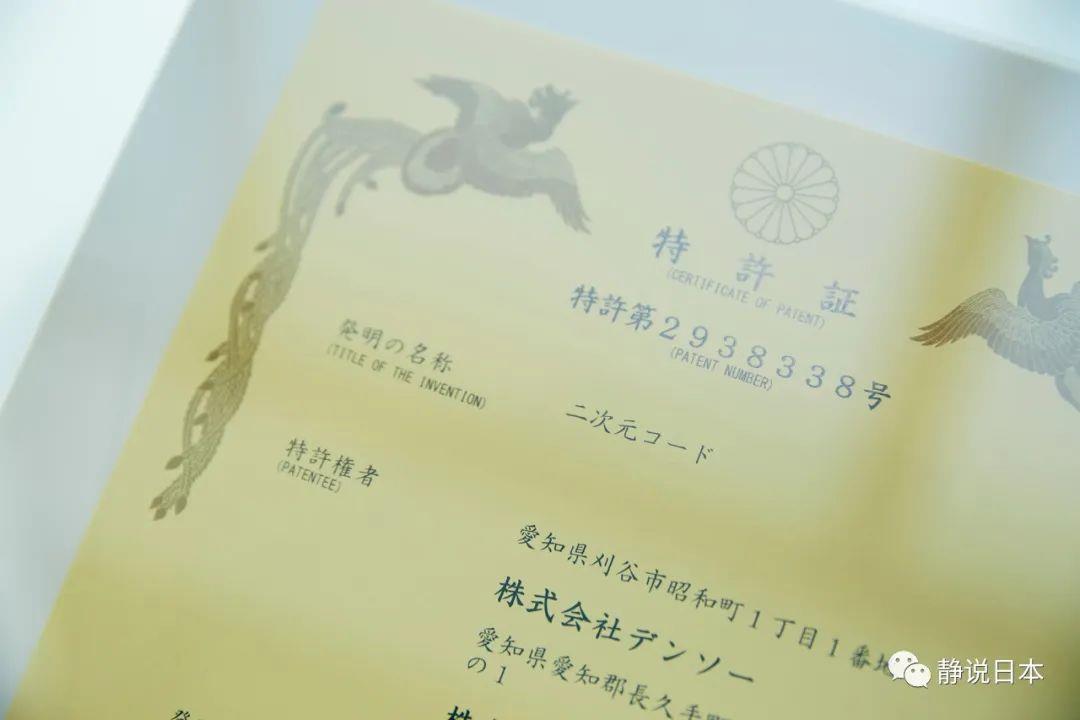 特許証
(CERTIFICATE OF PATENT)
特許第2938338号
(PATENT NUMBER)
発明の名称
(TITLE OF THE INVENTION)
二次元コード
特許権者
(PATENTEE)
愛知県刈谷市昭和町1丁目1番地
株式会社デンソー
愛知県愛知郡長久手町
の1
株
発
静说日本